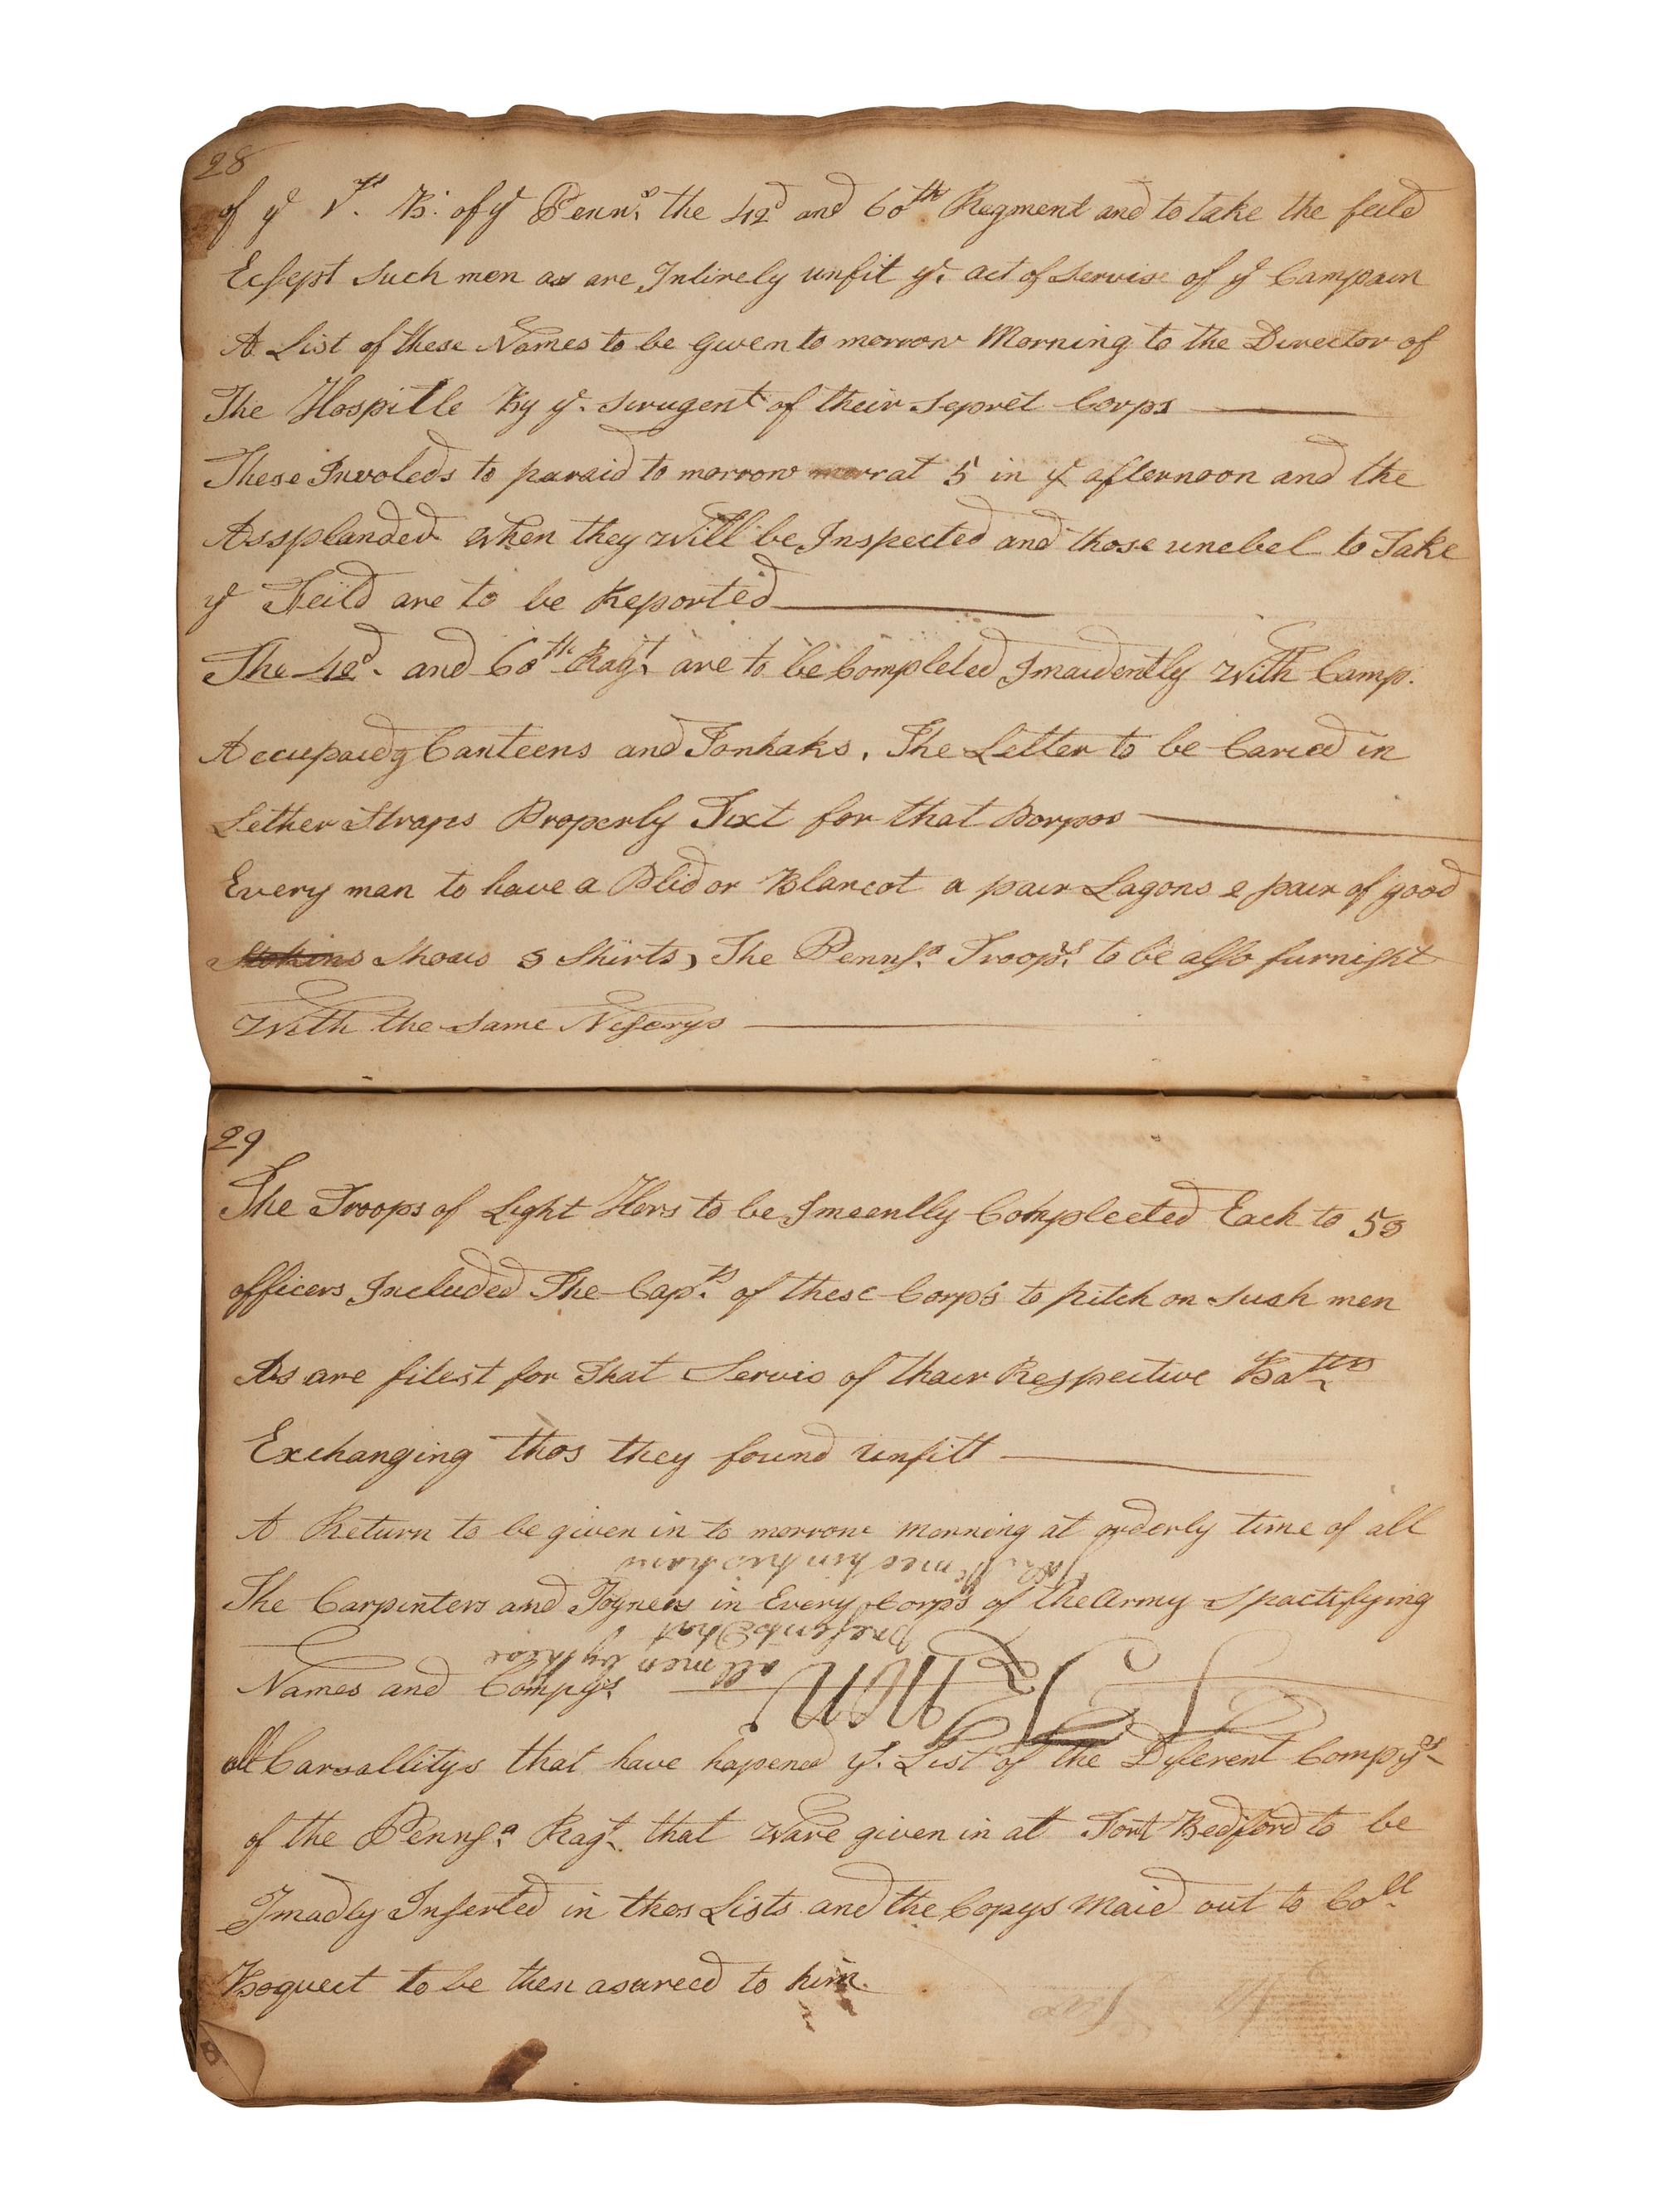 28
of ye 1st. B. of ye Pennsa. the 42d and 60th Regment and to take the feild
Ecsept such men as are Intirely unfit ye. act of Servise of ye Campain
A List of these Names to be Given to morrow Morning to the Director of
The Hospitle By ye. surugent of their sepret Corps
These Involeds to paraid to morrow at 5 in ye afternoon and the
Assplanded when they Will be Inspected and those unebel to Take
ye Feild are to be Reported
The 42d. and 60th Ragt. are to be Compleled Imaidently With Camp.
Accupaidg Canteens and Tonhaks. The Letter to be Caried in
Lether Straps Properly Fixt for that Porpos
Every man to have a Plid or Blancot a pair Lagons 2 pair of good
Stokins Shoas 3 Shirts, The Pennsa. Troops. to be also furnisht
With the same Neserys
29
The Troops of Light Hors to be Imeently Complected Each to 50
officers Included The Capts. of these Corps to pitch on such men
As are fitest for that Servis of thair Respective Battns
Exchanging thos they found unfitt
A Return to be given in to morrow morning at orderly time of all
The Carpinters and Joyners in Every Corps of the army Spactifying
Names and Compys.
all men by these
presents that
all Carsallitys that have hapened ye. List of the Diferent Compys
of the Pennsa. Ragt. that Ware given in at Fort Bedford to be
Imadly Inserted in thos Lists and the Copys maid out to Coll.
Boquect to be then asureed to him.